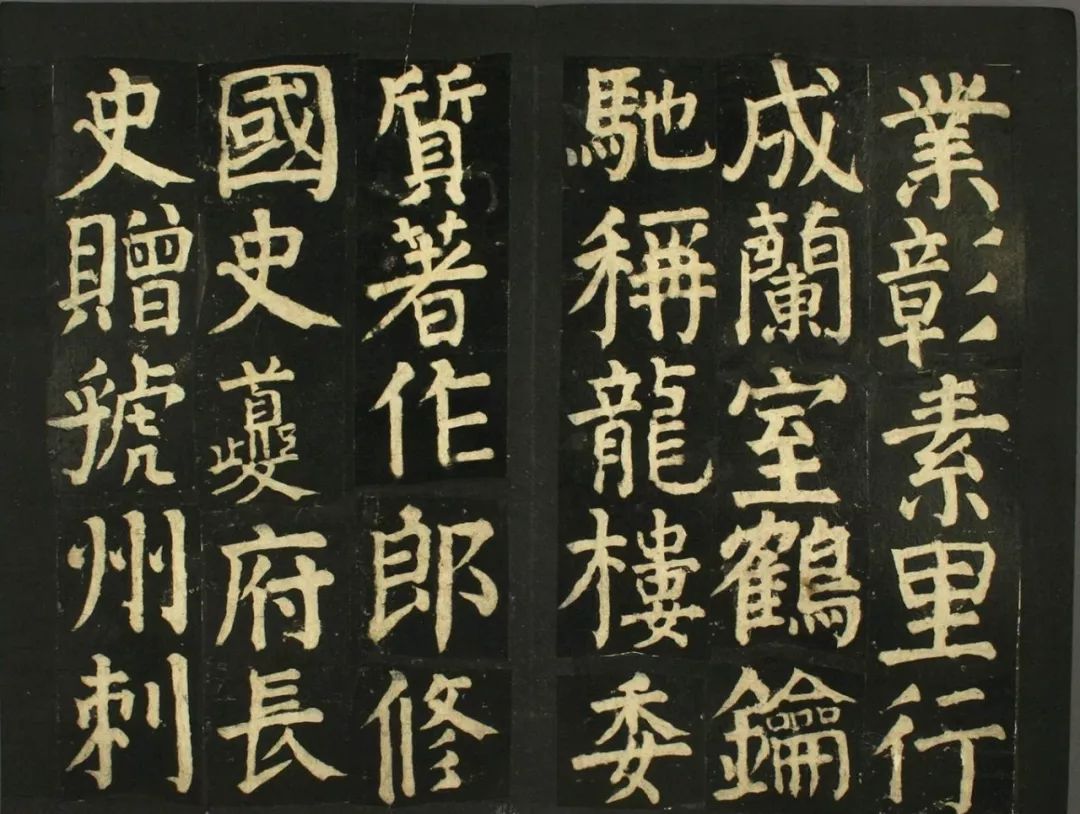 業彰素里行
成蘭室鶴鑰
馳稱龍樓委
質著作郎修
國史夔府長
史贈虢州刺